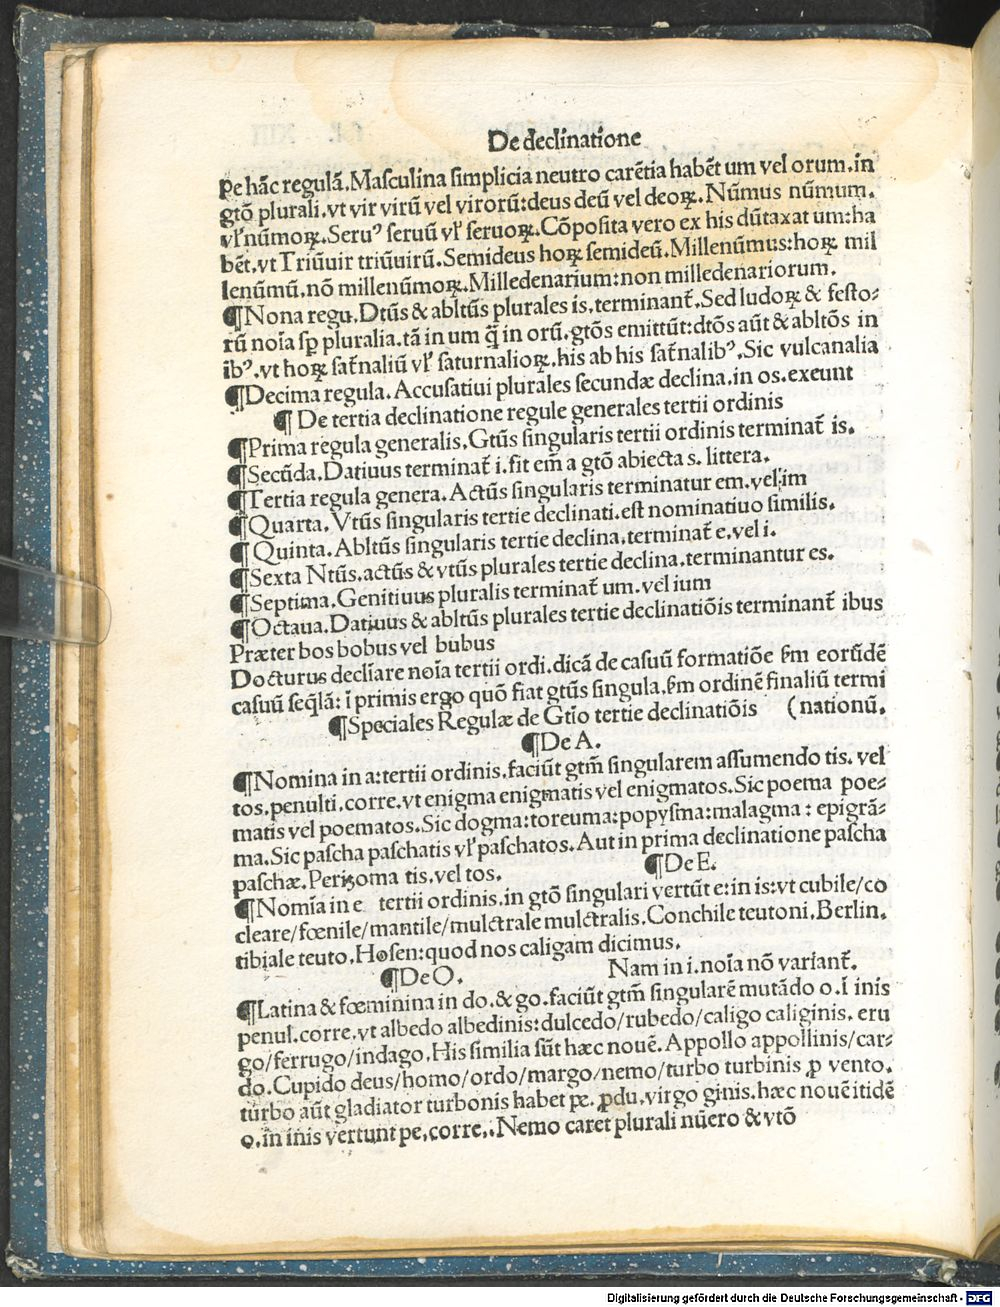 De declinatione
pe hãc regulã. Masculina simplicia neutro carẽtia habẽt um vel orum. in
gtõ plurali. vt vir virũ vel virorũ: deus deũ vel deoꝝ. Nũmus nũmum.
vl' nũmoꝝ. Seruꝰ seruũ vl' seruoꝝ. Cõposita vero ex his dũtaxat um: ha
bẽt. vt Triũuir triũuirũ. Semideus hoꝝ semideũ. Millenũmus: hoꝝ mil
lenũmũ. nõ millenũmoꝝ. Milledenarium: non milledenariorum.
¶ Nona regu. Dtũs & abltũs plurales is. terminant̃. Sed ludoꝝ & festo⸗
rũ noĩa sꝑ pluralia. tã in um q̃ in orũ. gtõs emittũt: dtõs aũt & abltõs in
ibꝰ. vt hoꝝ sat̃naliũ vl' saturnalioꝝ. his ab his sat̃nalibꝰ. Sic vulcanalia
¶ Decima regula. Accusatiui plurales secundæ declina. in os. exeunt
¶ De tertia declinatione regule generales tertii ordinis
¶ Prima regula generalis. Gtũs singularis tertii ordinis terminat̃ is.
¶ Secũda. Datiuus terminat̃ i. fit em̃ a gtõ abiecta s. littera.
¶ Tertia regula genera. Actũs singularis terminatur em. vel im
¶ Quarta. Vtũs singularis tertie declinati. est nominatiuo similis.
¶ Quinta. Abltũs singularis tertie declina. terminat̃ e. vel i.
¶ Sexta Ntũs. actũs & vtũs plurales tertie declina. terminantur es.
¶ Septima. Genitiuus pluralis terminat̃ um. vel ium
¶ Octaua. Datiuus & abltũs plurales tertie declinatiõis terminant̃ ibus
Præter bos bobus vel bubus
Docturus decliare noĩa tertii ordi. dicã de casuũ formatiõe ẞm eorũdẽ
casuũ seq̃lã: ĩ primis ergo quõ fiat gtũs singula. ẞm ordinẽ finaliũ termi
¶ Speciales Regulæ de Gtĩo tertie declinatiõis (nationũ.
¶ De A.
¶ Nomina in a: tertii ordinis. faciũt gtm̃ singularem assumendo tis. vel
tos. penulti. corre. vt enigma enigmatis vel enigmatos. Sic poema poe⸗
matis vel poematos. Sic dogma: toreuma: popysma: malagma: epigrã⸗
ma. Sic pascha paschatis vl' paschatos. Aut in prima declinatione pascha
paschæ. Perizoma tis. vel tos.
¶ De E.
¶ Nomĩa in e tertii ordinis. in gtõ singulari vertũt e: in is: vt cubile/co
cleare/fœnile/mantile/mulctrale mulctralis. Conchile teutoni. Berlin.
tibiale teuto. Hosen: quod nos caligam dicimus.
¶ De O. Nam in i. noĩa nõ variant̃.
¶ Latina & fœminina in do. & go. faciũt gtm̃ singularẽ mutãdo o. ĩ inis
penul. corre. vt albedo albedinis: dulcedo/rubedo/caligo caliginis. eru
go/ferrugo/indago. His similia sũt hæc nouẽ. Appollo appollinis/car⸗
do. Cupido deus/homo/ordo/margo/nemo/turbo turbinis ꝓ vento.
turbo aũt gladiator turbonis habet pe. ꝓdu. virgo ginis. hæc nouẽ itidẽ
o. in inis vertunt pe. corre. Nemo caret plurali nũero & vtõ
Digitalisierung gefördert durch die Deutsche Forschungsgemeinschaft - DFG